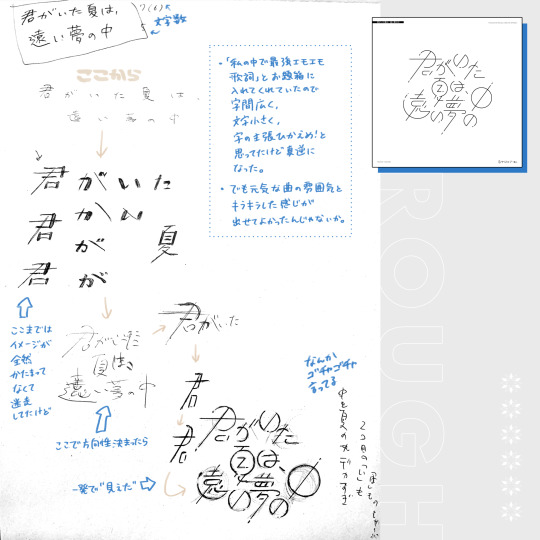 君がいた夏は、
遠い夢の中
7(6)
5
文字数
ここから
君がいた夏は、
遠い夢の中
・「私の中で最強エモエモ
歌詞」とお題箱に
入れてくれていたので
字間広く、
文字小さく、
字の主張ひかえめ！と
思ってたけど真逆に
なった。
・でも元気な曲の雰囲気と
キラキラした感じが
出せてよかったんじゃないか。
君がいた
君かい
君が夏
君が
ここまでは
イメージが
全然
かたまって
なくて
迷走
してたけど
君がいた
夏は、
遠い夢の中
ここで方向性決まったら
君がいた
君
君
一発で"見えた"
君がいた
夏は、
遠い夢の中
なんか
ゴチャゴチャ
言ってる
2コ目の「い」も
君がいた
夏は、
遠い夢の中
ROUGH